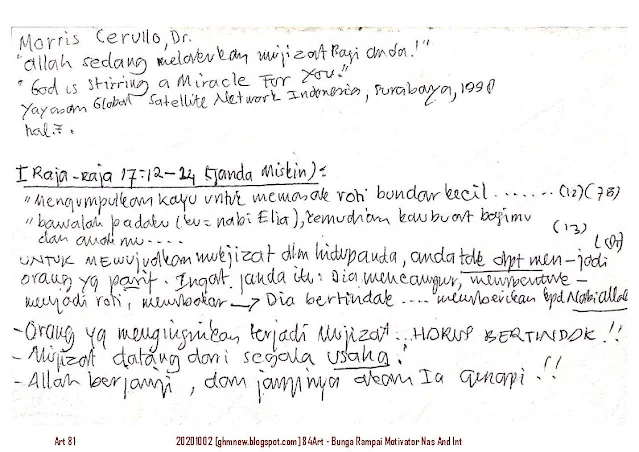 Morris Cerullo, Dr.
"Allah sedang melakukan mujizat Bagi anda!"
"God is stirring a Miracle For You."
Yayasan Global Satellite Network Indonesia, Surabaya, 1998
hal 7.
I Raja-raja 17:12-24 (Janda Miskin):
"Mengumpulkan kayu untuk memasak roti bundar kecil ....... (12) (78)
"bawalah padaku (ku = nabi Elia), kemudian kau buat bagimu
dan anak mu .... (13)
UNTUK MEWUJUDKAN mukjizat dlm hidup anda, anda tdk dpt men-jadi
orang yg pasif. Ingat janda itu: Dia mencampur, membentuk -
menjadi roti, membakar → Dia bertindak .... memberikan kpd Nabi allah
- Orang yg menginginkan terjadi Mujizat.. HARUS BERTINDAK !!
- Mujizat datang dari segala usaha.
- Allah berjanji, dan janjinya akan Ia genapi !!
Art 81 20201002 [ghmnew.blogspot.com] 84Art - Bunga Rampai Motivator Nas And Int